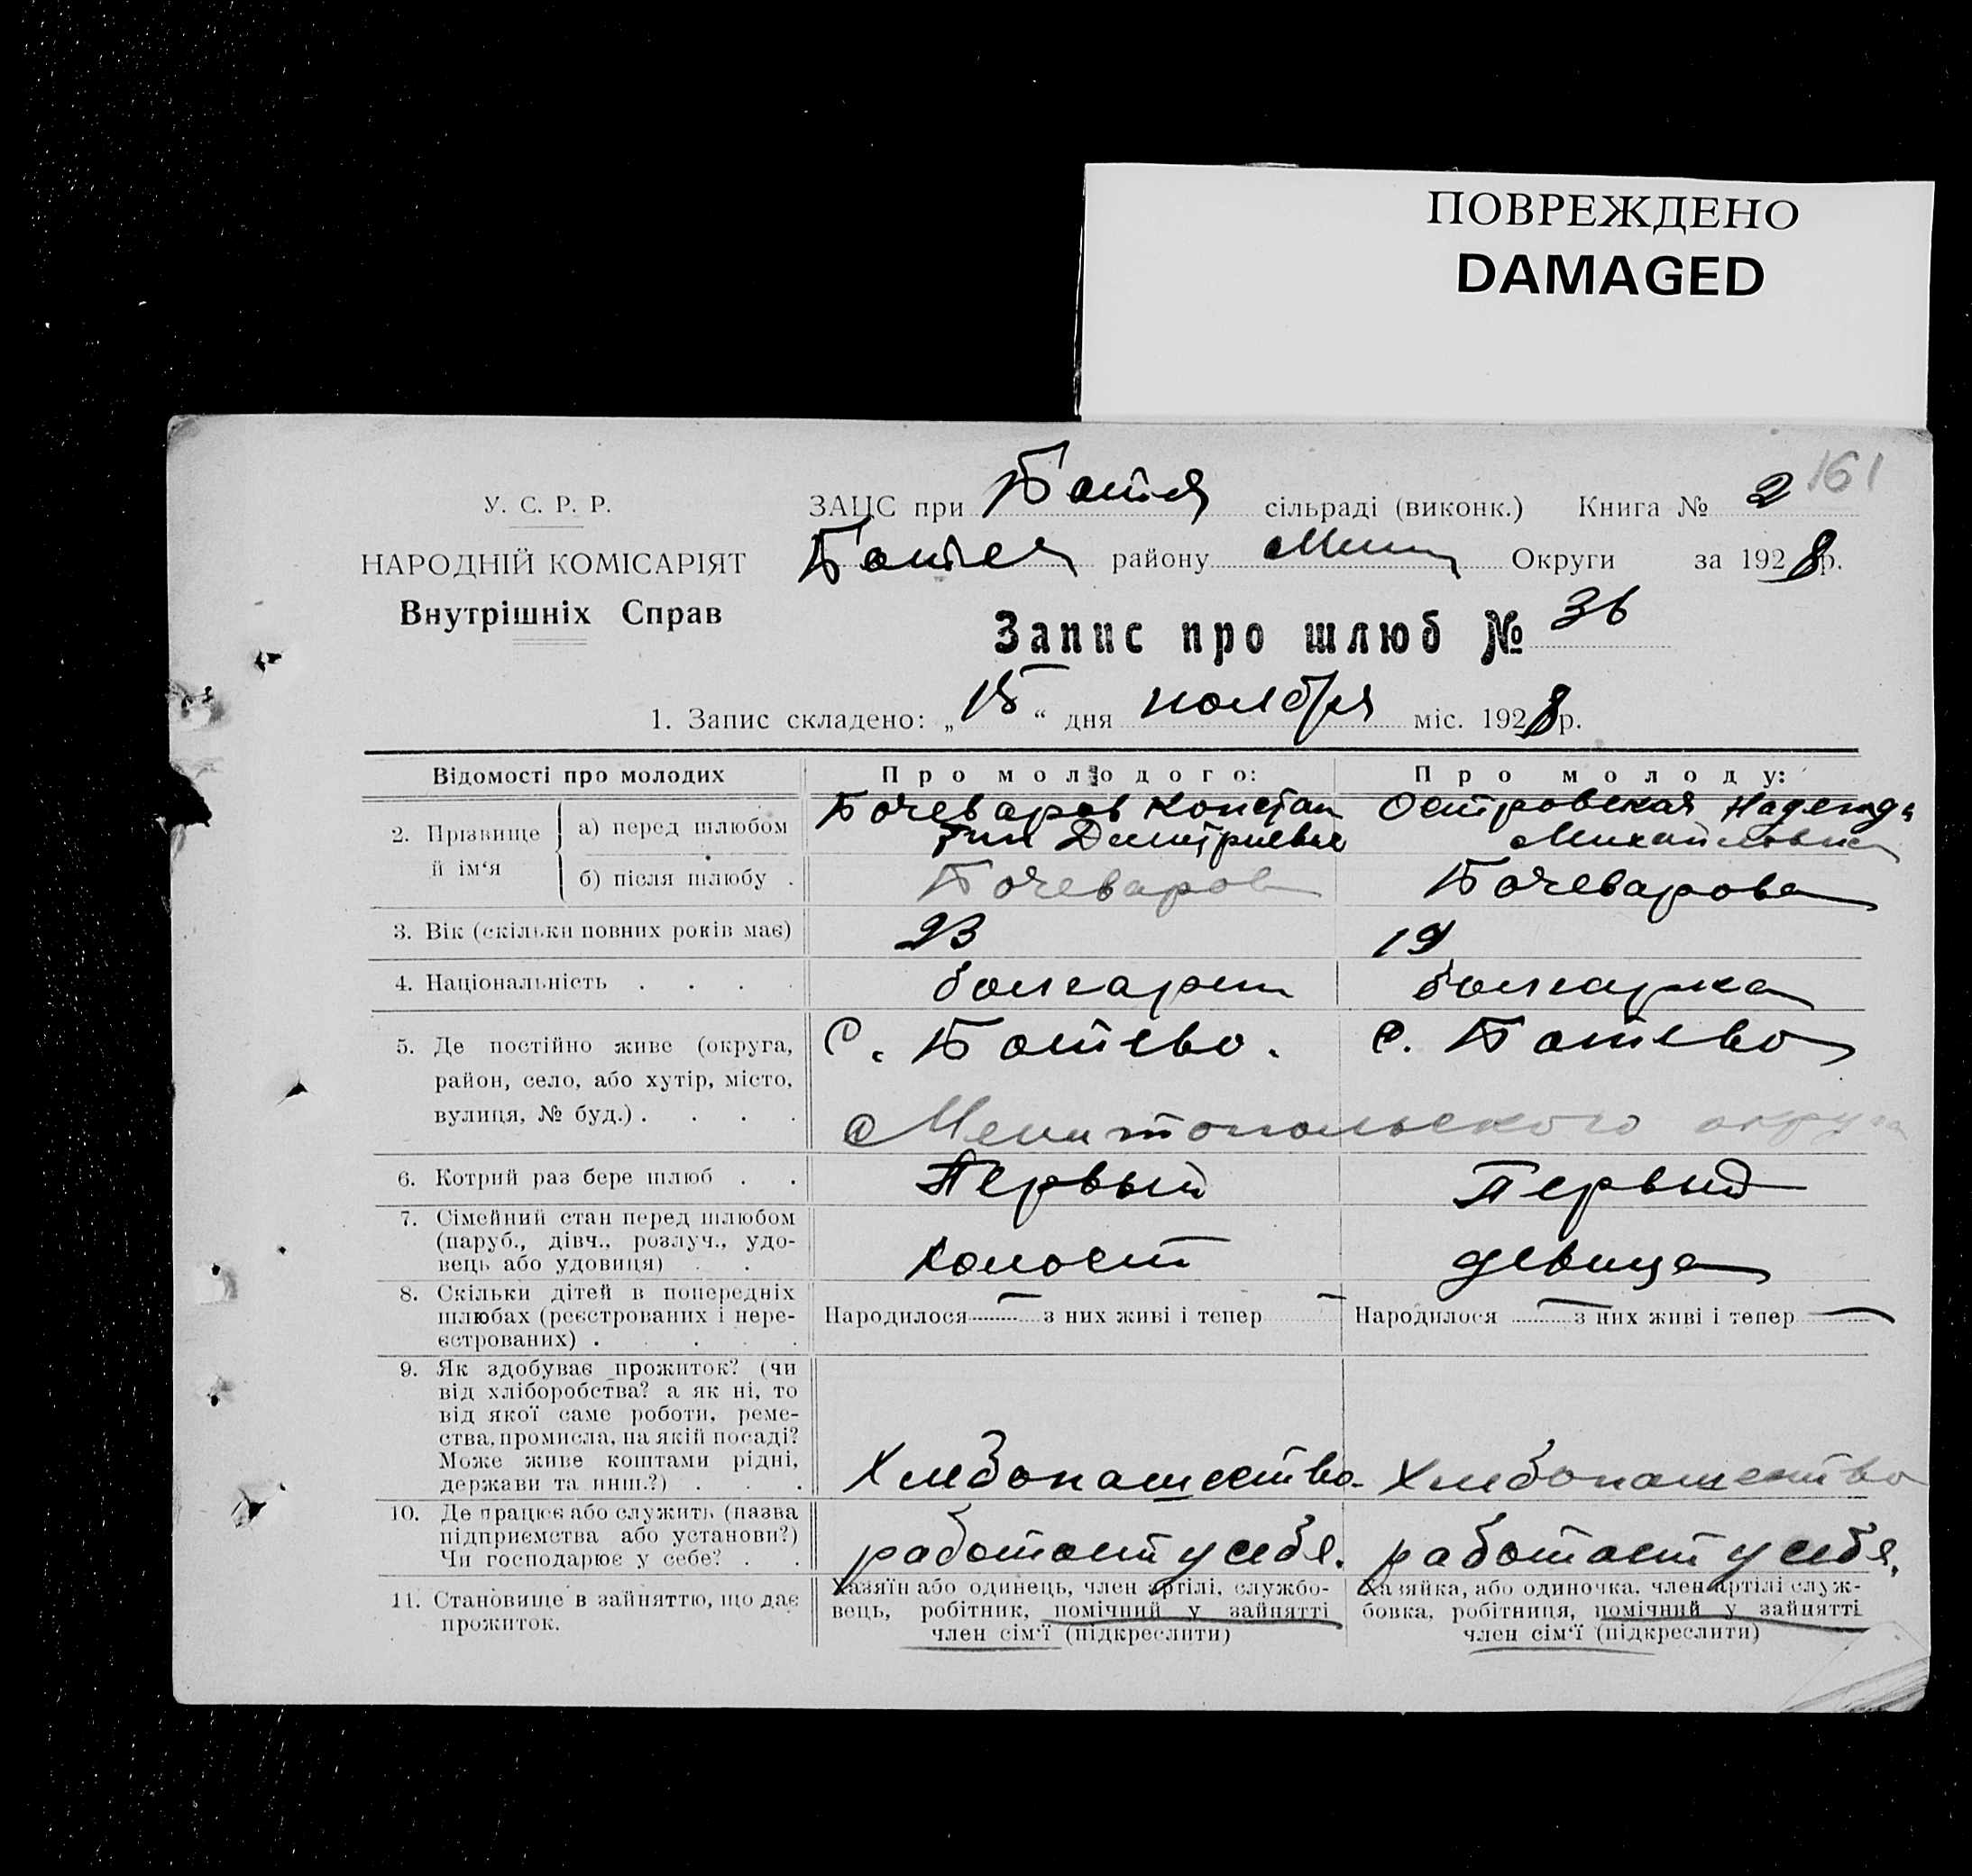 ПОВРЕЖДЕНО
DAMAGED
161
У. С. Р. Р.
ЗАЦС при Ботев сільраді (виконк.) Книга № 2
НАРОДНІЙ КОМІСАРІЯТ
Ботев району Мелит Округи за 1928 р.
Внутрішніх Справ
Запис про шлюб № 36
1. Запис складено: „15“ дня ноября міс. 1928 р.
Відомості про молодих
Про молодого:
Про молоду:
2. Прізвище й ім‘я
а) перед шлюбом
Бочеваров Констан
тин Дмитриевич
Островская Надежда
Михайловна
б) після шлюбу .
Бочеваров
Бочеварова
3. Вік (скільки повних років має)
23
19
4. Національність . . . .
болгарин
болгарка
5. Де постійно живе (округа,
район, село, або хутір, місто,
вулиця, № буд.) . . . .
С. Ботево.
с. Ботево
Мелитопольского округа
6. Котрий раз бере шлюб . .
Первый
Первый
7. Сімейний стан перед шлюбом
(паруб., дівч., розлуч., удо-
вець або удовиця) . .
холост
девица
8. Скільки дітей в попередніх
шлюбах (реєстрованих і нере-
єстрованих) . . . .
Народилося — з них живі і тепер —
Народилося — з них живі і тепер —
9. Як здобуває прожиток? (чи
від хліборобства? а як ні, то
від якої саме роботи, реме-
ства, промисла, на якій посаді?
Може живе коштами рідні,
держави та инш.?) . . .
Хлебопашество
Хлебопашество
10. Де працює або служить (назва
підприємства або установи?)
Чи господарює у себе? . .
работает у себя.
работает у себя.
11. Становище в зайняттю, що дає
прожиток.
Хазяїн або одинець, член артілі, службо-
вець, робітник, помічний у зайнятті
член сім‘ї (підкреслити)
Хазяйка, або одиночка, член артілі служ-
бовка, робітниця, помічний у зайнятті
член сім‘ї (підкреслити)